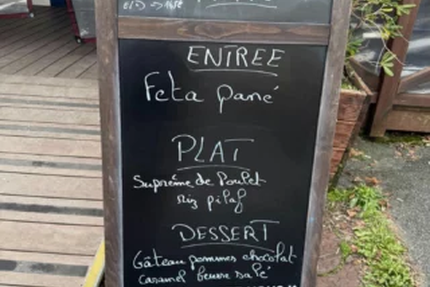 ENTREE
Feta pané
PLAT
Suprême de Poulet
riz pilaf
DESSERT
Gâteau pommes chocolat
caramel beurre salé